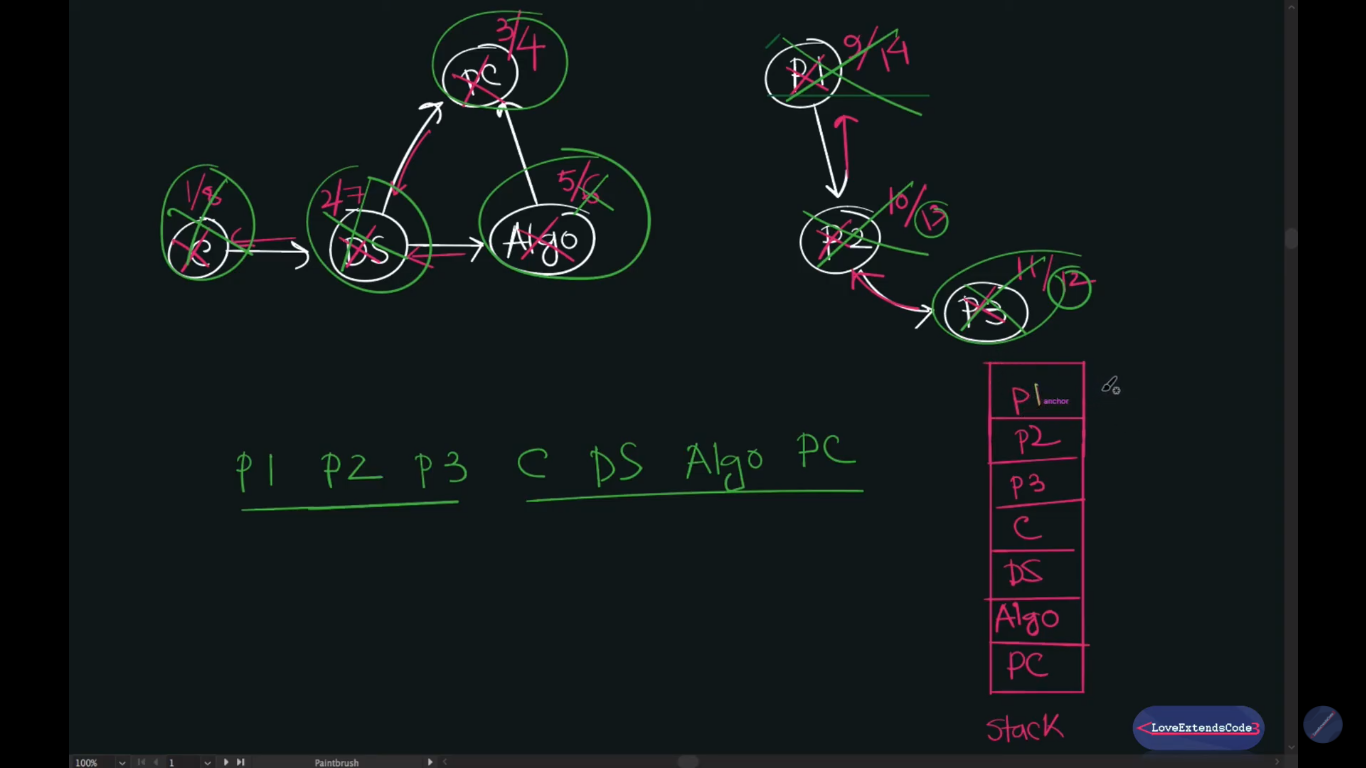 3/4
PC
9/14
P1
1/8
C
2/7
DS
5/6
Algo
10/13
P2
11/12
P3
P1 P2 P3 C DS Algo PC
P1
anchor
P2
P3
C
DS
Algo
PC
Stack
<LoveExtendsCode3
100%
1
Paintbrush